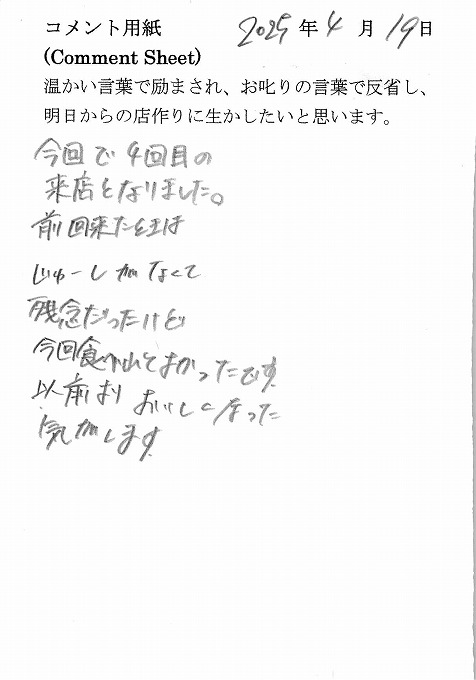 コメント用紙 2025年4月19日
(Comment Sheet)
温かい言葉で励まされ、お叱りの言葉で反省し、
明日からの店作りに生かしたいと思います。
今回で4回目の
来店となりました。
前回来た時は
じゅーしがなくて
残念だったけど
今回食べれてよかったです
以前より おいしくなった
気がします